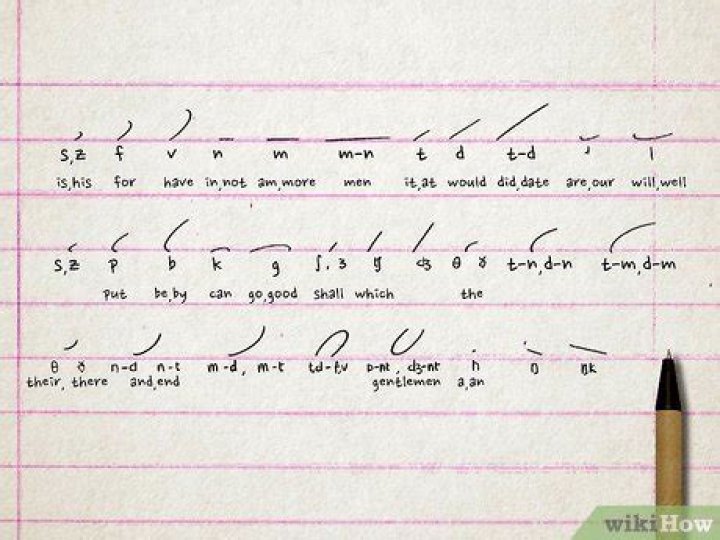 s,z f v n m m-n t d t-d ɹ l
is,his for have in,not am,more men it,at would did,date are,our will,well
s,z p b k g ʃ, ʒ ʧ ʤ θ ɤ t-n,d-n t-m,d-m
put be,by can go,good shall which the
θ ɤ n-d n-t m-d, m-t td-f,v p-nt, ʤ-nt h ŋ ŋk
their, there and,end gentlemen a,an
wikiHow